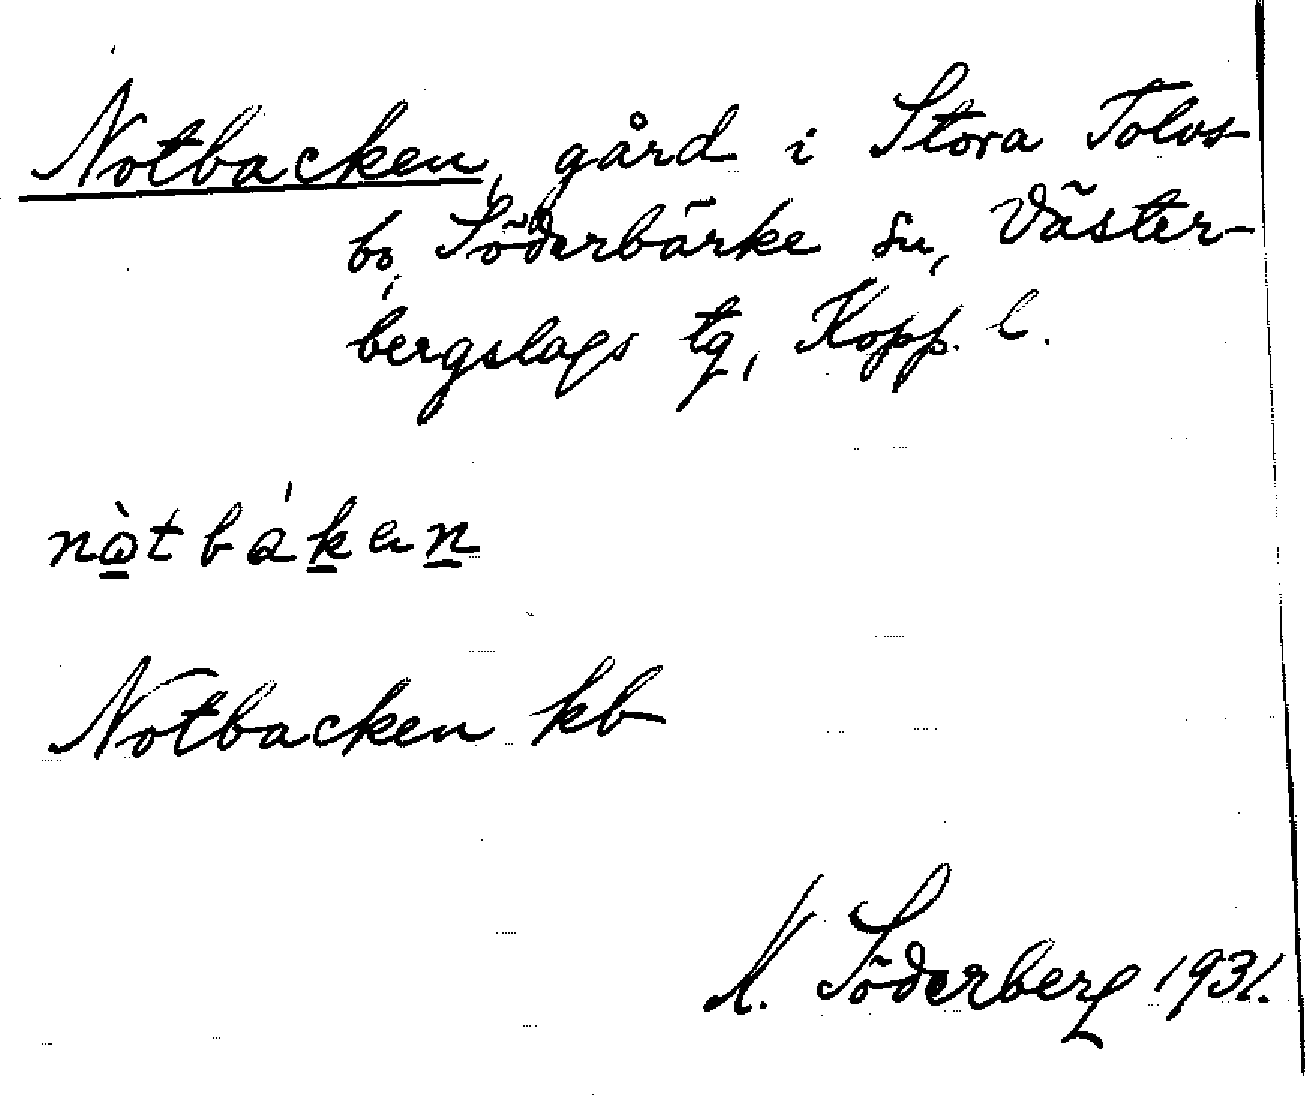 Notbacken, gård i Stora Tolvs
bo, Söderbärke sn, Väster-
bergslags tg, Kopp. l.
nò̱tbák̠an̠
Notbacken kb
Söderberg 1931.